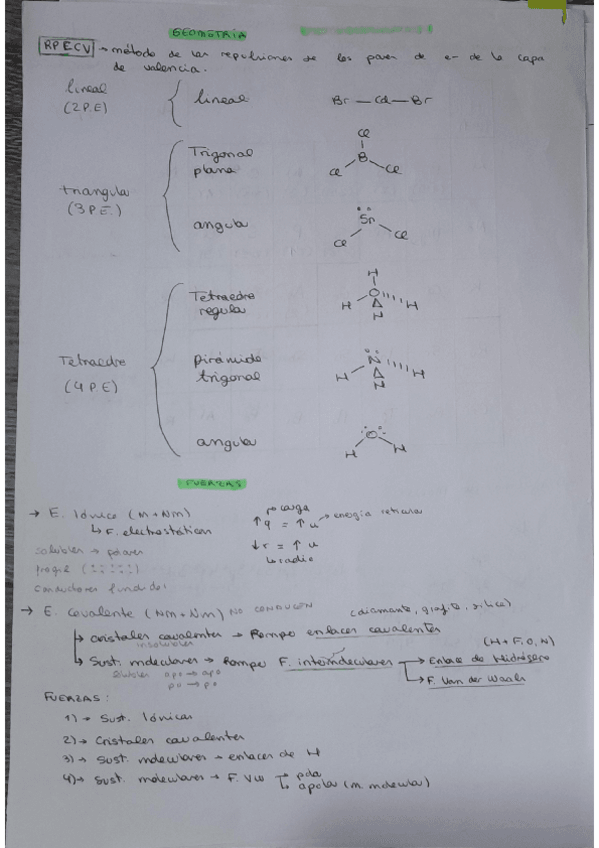 GEOMETRÍA
RPECV → método de las repulsiones de los pares de e- de la capa
de valencia.
lineal
(2P.E)
lineal
Br — Cd — Br
triangular
(3 P.E.)
Trigonal
plana
Cl
B
Cl Cl
angular
Sn
Cl Cl
Tetraedro
(4 P.E)
Tetraedro
regular
H
H C H
H
pirámide
trigonal
N
H H
H
angular
O
H H
FUERZAS
→ E. Iónico (M + Nm)
↳ F. electrostáticas
solubles → polares
conductores fundidos
↑ q = ↑ u → energía reticular
carga
↓ r = ↑ u
↳ radio
→ E. Covalente (Nm + Nm) NO CONDUCEN
(diamante, grafito, sílice)
↳ cristales covalentes → Rompo enlaces covalentes
insolubles
↳ Sust. moleculares → Rompo F. intermoleculares
(H + F, O, N)
→ Enlace de Hidrógeno
→ F. Van der Waals
Solubles apo → apo
po → po
FUERZAS:
1) → Sust. Iónicas
2) → Cristales covalentes
3) → Sust. moleculares → enlaces de H
4) → Sust. moleculares → F. VW → polar
↳ apolar (m. molecular)